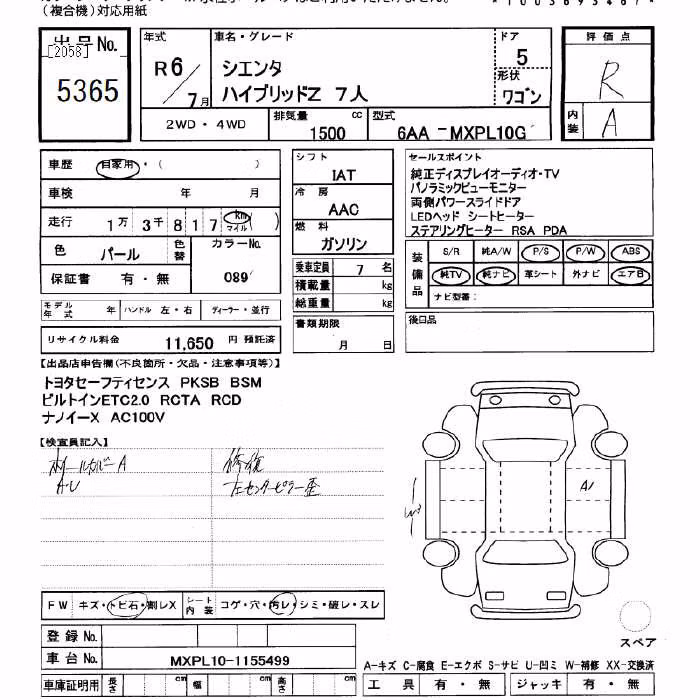 (複合機)対応用紙
出品No.
[2058]
5365
年式
R6
7月
車名・グレード
シエンタ
ハイブリッドZ 7人
ドア
5
形状
ワゴン
評価点
R
内装
A
2WD・4WD
排気量
1500
cc
型式
6AA -MXPL10G
車歴
自家用・( )
車検 年 月
走行 1万 3千 8 1 7 km マイル ( )
色 パール
色替
カラーNo.
089
保証書 有・無
モデル年式 年
ハンドル 左・右
ディーラー・並行
リサイクル料金 11,650 円 預託済
シフト
IAT
冷房
AAC
燃料
ガソリン
乗車定員 7 名
積載量 kg
総重量 kg
書類期限
月 日
セールスポイント
純正ディスプレイオーディオ・TV
パノラミックビューモニター
両側パワースライドドア
LEDヘッド シートヒーター
ステアリングヒーター RSA PDA
装備品
S/R 純A/W P/S P/W ABS
純TV 純ナビ 革シート 外ナビ エアB
ナビ型番:
後日品
【出品店申告欄(不良箇所・欠品・注意事項等)】
トヨタセーフティセンス PKSB BSM
ビルトインETC2.0 RCTA RCD
ナノイーX AC100V
【検査員記入】
ホイールカバーA
AU
修復
左センターピラー歪
A1
FW キズ・トビ石・割レX
シート内装 コゲ・穴・汚レ・シミ・破レ・スレ
登録No.
車台No. MXPL10-1155499
車庫証明用 長さ cm 幅 cm 高さ cm
スペア
A-キズ C-腐食 E-エクボ S-サビ U-凹ミ W-補修 XX-交換済
工具 有・無 ジャッキ 有・無